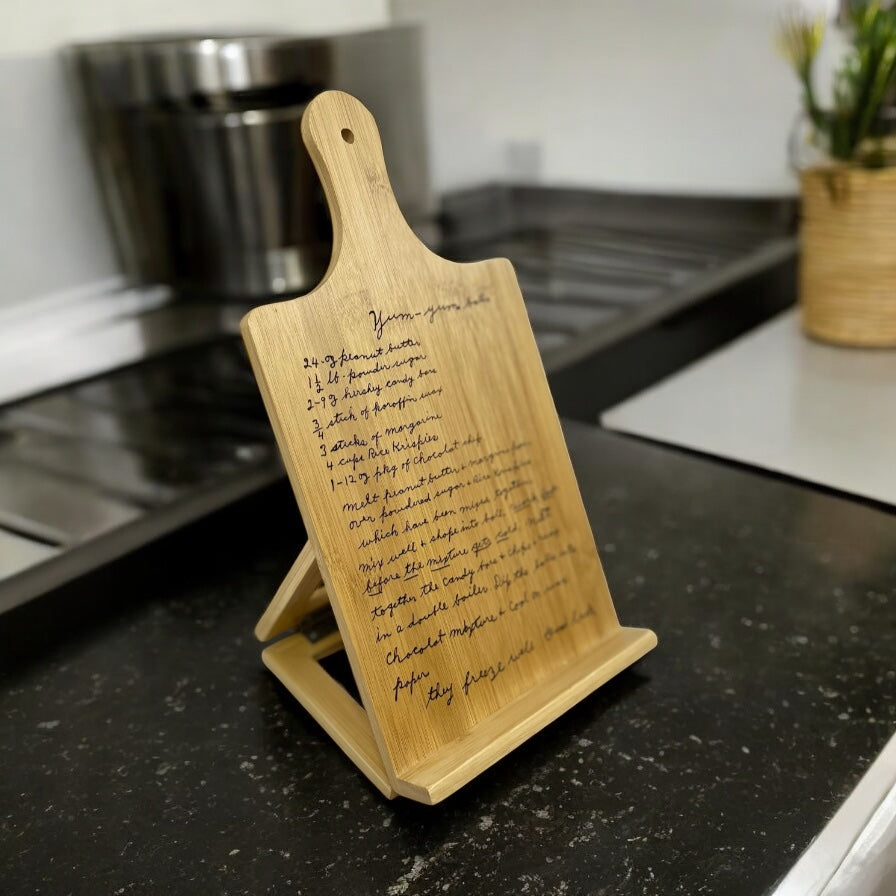 Yum-yum balls
24-oz peanut butter
1 1/2 lb-powder sugar
2-9 oz hershy candy bars
3/4 stick of paroffin wax
3 sticks of margarine
4 cups Rice Krispies
1-12 oz pkg of chocolat chip
melt peanut butter & margarine pour
over powdered sugar & Rice Krispies
which have been mixed together
mix well & shape into balls, work fast
before the mixture gets cold. Melt
together the candy bars & chips & wax
in a double boiler. Dip the balls into
Chocolat mixture & Cool on wax
paper
they freeze well